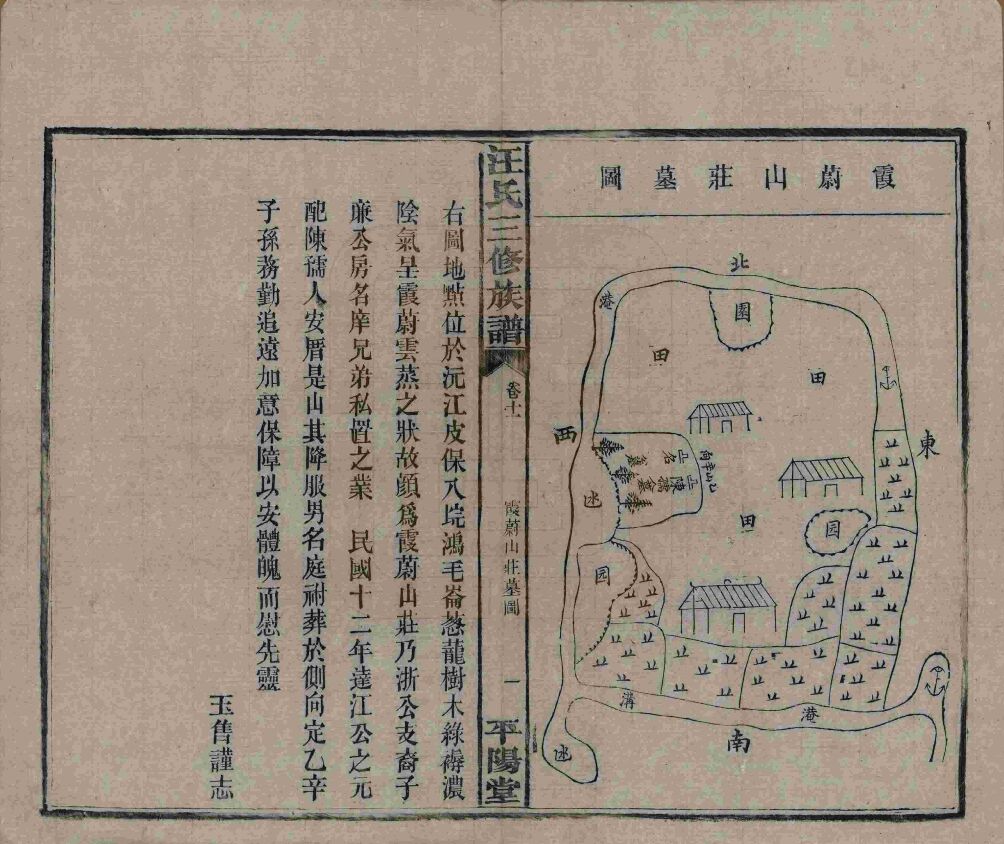 霞蔚山莊墓圖
北
港
園
田
田
東
西
乙山辛向
山
名
陳孺
墓
述
田
园
园
溝
港
南
述
汪氏三修族譜
卷十一
霞蔚山莊墓圖
一
平陽堂
右圖地點位於沅江皮保八垸鴻毛崙葱蘢樹木綠褥濃
陰氣呈霞蔚雲蒸之狀故顔爲霞蔚山莊乃浙公支裔子
亷公房名庠兄弟私置之業 民國十二年達江公之元
配陳孺人安厝是山其降服男名庭祔葬於側向定乙辛
子孫務勤追遠加意保障以安體魄而慰先靈
玉售謹志